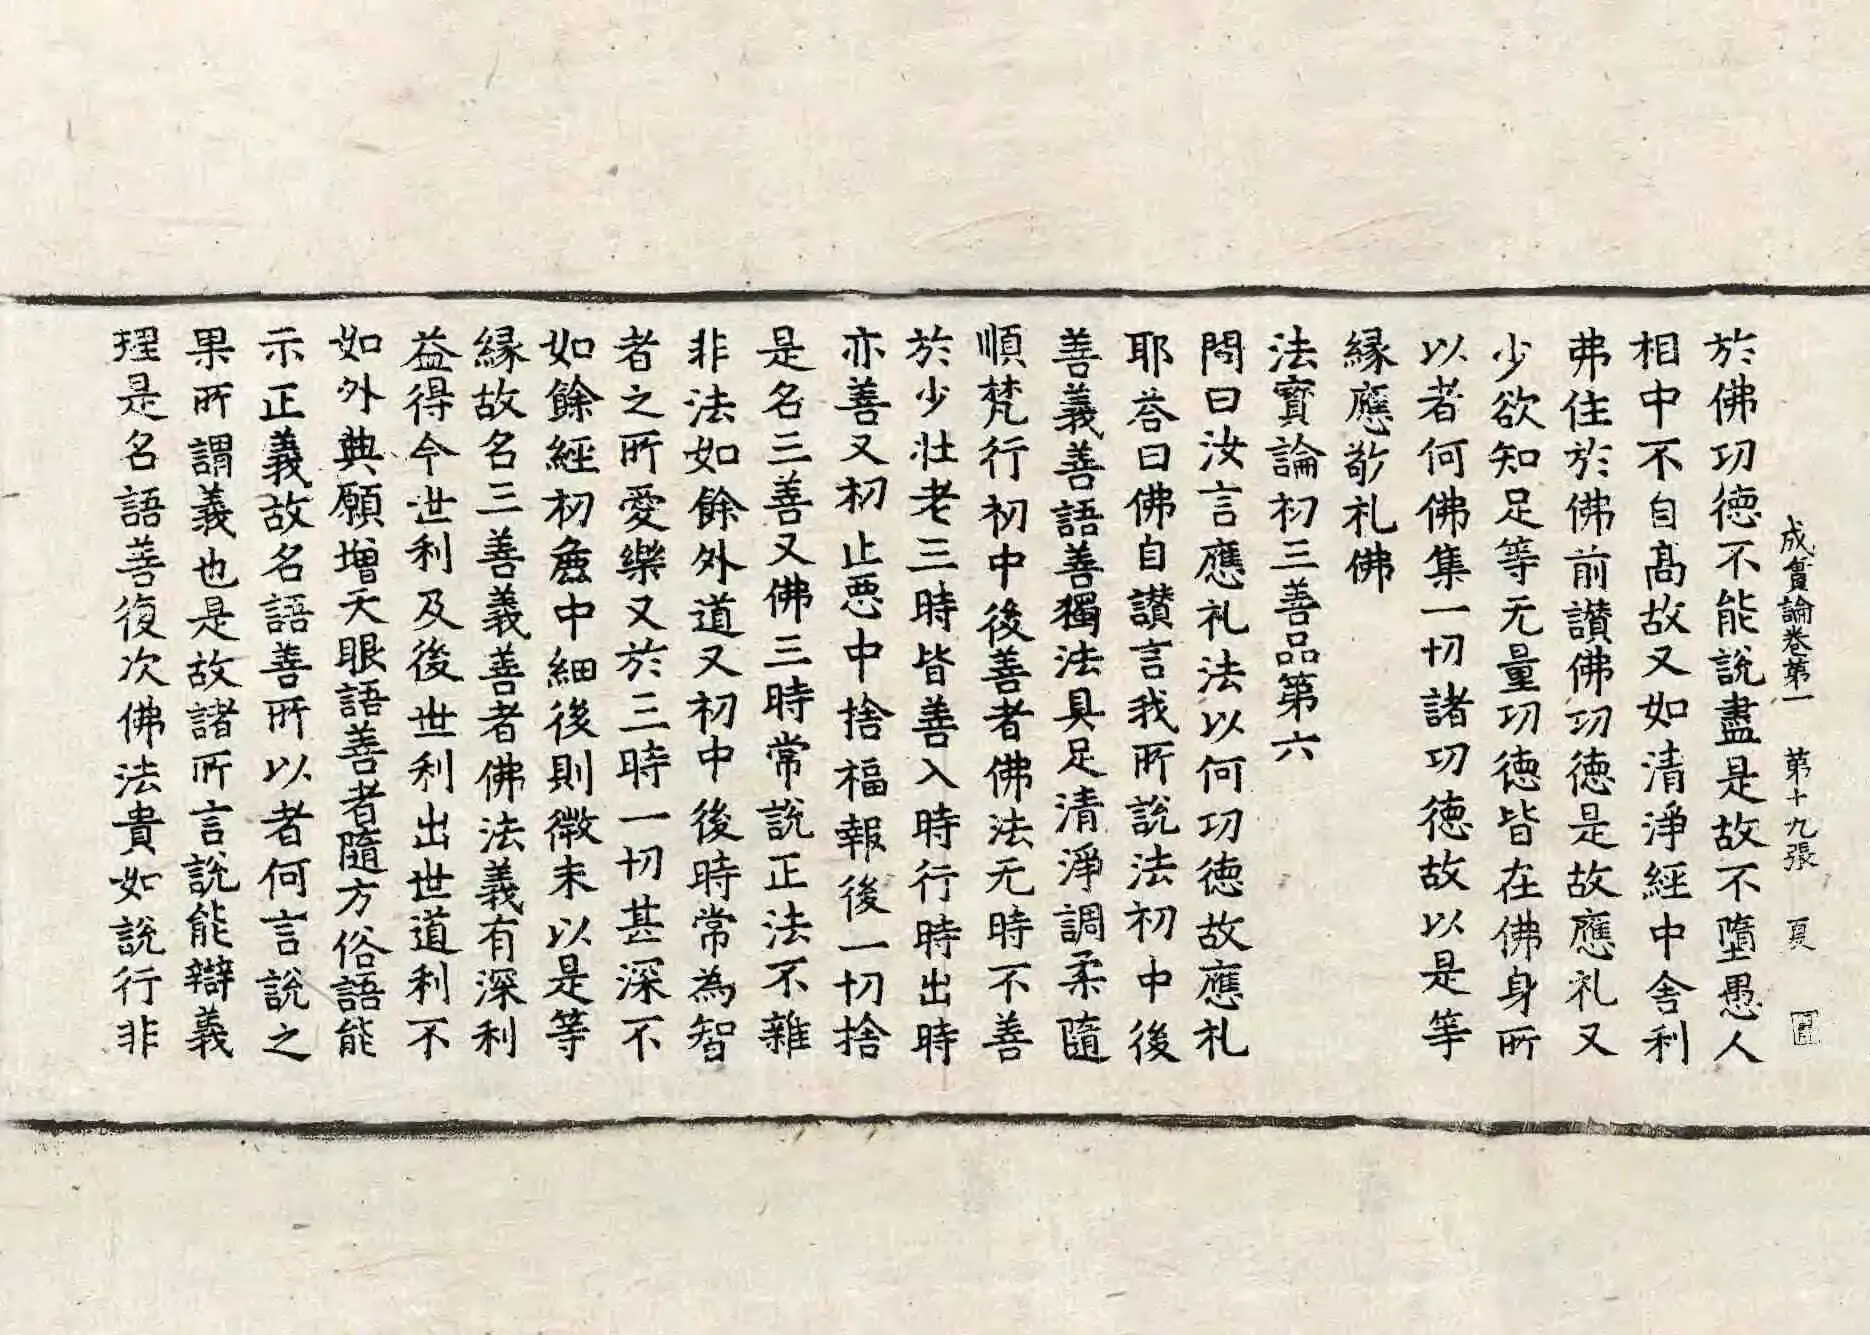 成實論卷第一 第十九張 夏
於佛功德不能說盡是故不墮愚人
相中不自髙故又如清淨經中舍利
弗住於佛前讃佛功徳是故應礼又
少欲知足等无量功徳皆在佛身所
以者何佛集一切諸功徳故以是等
縁應敬礼佛
法寳論初三善品第六
問曰汝言應礼法以何功徳故應礼
耶荅曰佛自讃言我所說法初中後
善義善語善獨法具足清淨調柔隨
順梵行初中後善者佛法无時不善
於少壯老三時皆善入時行時出時
亦善又初止惡中捨福報後一切捨
是名三善又佛三時常說正法不雜
非法如餘外道又初中後時常為智
者之所愛樂又於三時一切甚深不
如餘經初麁中細後則微末以是等
縁故名三善義善者佛法義有深利
益得今世利及後世利出世道利不
如外典願增天眼語善者隨方俗語能
示正義故名語善所以者何言說之
果所謂義也是故諸所言說能辯義
理是名語善復次佛法貴如說行非